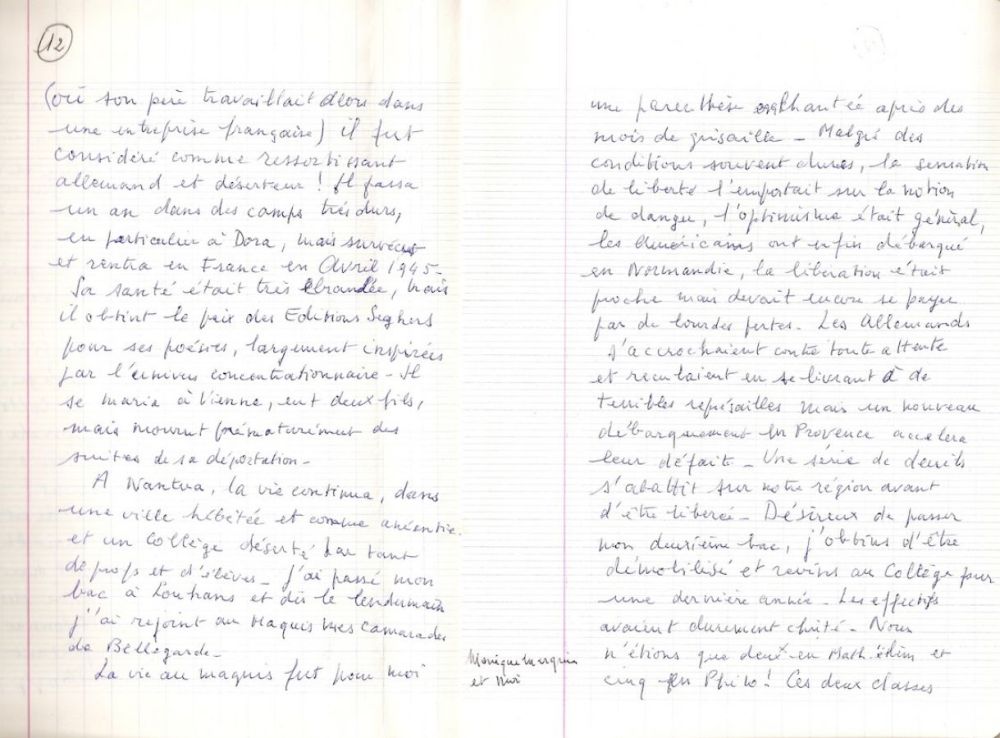 12
(où son père travaillait alors dans
une entreprise française) il fut
considéré comme ressortissant
allemand et déserteur ! Il passa
un an dans des camps très durs,
en particulier à Dora, mais survécut
et rentra en France en Avril 1945 -
Sa santé était très ébranlée, mais
il obtint le prix des Editions Seghers
pour ses poésies, largement inspirées
par l'univers concentrationnaire - Il
se maria à Vienne, eut deux fils,
mais mourut prématurément des
suites de sa déportation -
A Nantua, la vie continua, dans
une ville hébétée et comme anéantie
et un Collège déserté par tant
de profs et d'élèves - J'ai passé mon
bac à Louhans et dès le lendemain
j'ai rejoint au Maquis mes camarades
de Bellegarde -
La vie au maquis fut pour moi
une parenthèse enchantée après des
mois de grisaille - Malgré des
conditions souvent dures, la sensation
de liberté l'emportait sur la notion
de danger, l'optimisme était général,
les Américains ont enfin débarqué
en Normandie, la libération était
proche mais devait encore se payer
par de lourdes pertes - Les Allemands
s'accrochaient contre toute attente
et reculaient en se livrant à de
terribles représailles mais un nouveau
débarquement en Provence accelera
leur défaite - Une série de deuils
s'abattit sur notre région avant
d'être liberée - Désireux de passer
mon deuxième bac, j'obtins d'être
démobilisé et revins au Collège pour
une dernière année - Les effectifs
avaient durement chuté - Nous
n'étions que deux en Math. élém et
cinq en Philo ! Ces deux classes
Monique
et moi